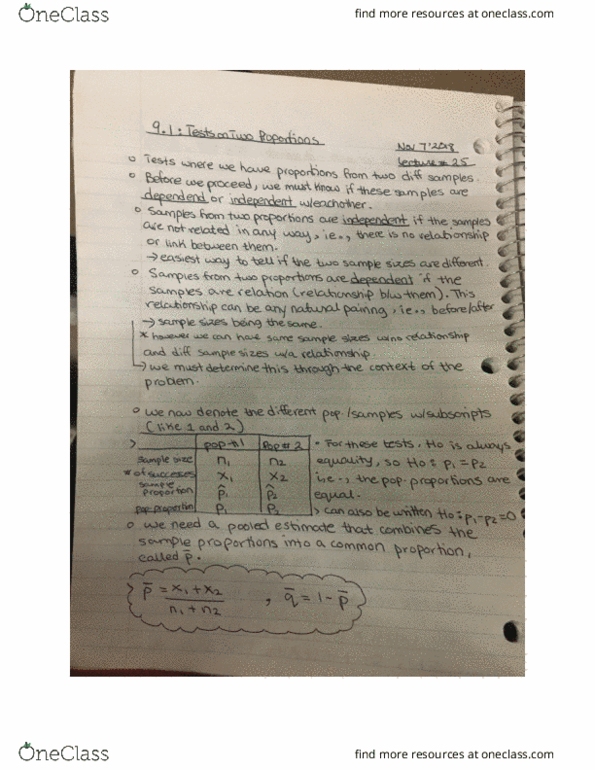 OneClass
find more resources at oneclass.com
9.1: Tests on Two Proportions
Nov 7 2018
lecture # 25
Tests where we have proportions from two diff samples.
Before we proceed, we must know if these samples are
dependend or independent w/eachother.
Samples from two proportions are independent if the samples
are not related in any way, i.e., there is no relationship
or link between them.
→ easiest way to tell if the two sample sizes are different.
Samples from two proportions are dependent if the
samples are relation (relationship b/w them). This
relationship can be any natural pairing, i.e., before/after
→ sample sizes being the same.
* however we can have same sample sizes w/no relationship
and diff sample sizes w/a relationship.
→ we must determine this through the context of the
problem.
we now denote the different pop./samples w/subscripts
(like 1 and 2)
> pop #1 Pop# 2 • For these tests, Ho is always
sample size n₁ n₂ equality, so Ho: p₁ = p₂
# of successes x₁ x₂ i.e., the pop. proportions are
sample proportion p̂₁ p̂₂ equal.
pop. proportion p₁ p₂ > can also be written Ho: p₁-p₂=0
we need a pooled estimate that combines the
sample proportions into a common proportion,
called p̄.
> p̄ = x₁ + x₂ / n₁ + n₂ , q̄ = 1 - p̄
OneClass
find more resources at oneclass.com